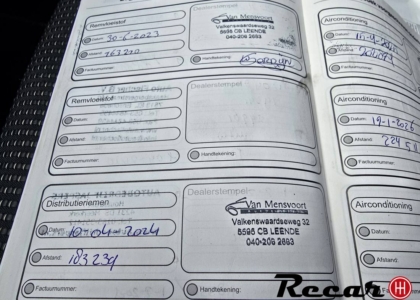 Remvloeistof
Datum: 30-6-2023
Afstand: 163200
Factuurnummer:
Van Mensvoort
Valkenswaardseweg 32
5595 CB LEENDE
040-206 2683
Handtekening:
Airconditioning
Datum:
Afstand:
Factuurnummer:
Remvloeistof
Datum:
Afstand:
Factuurnummer:
Dealerstempel
Handtekening:
Airconditioning
Datum: 19-1-2026
Afstand:
Factuurnummer:
Distributieriemen
Datum: 10-04-2024
Afstand: 183239
Factuurnummer:
Dealerstempel
Van Mensvoort
Valkenswaardseweg 32
5595 CB LEENDE
040-206 2683
Handtekening:
Airconditioning
Datum:
Afstand:
Recar